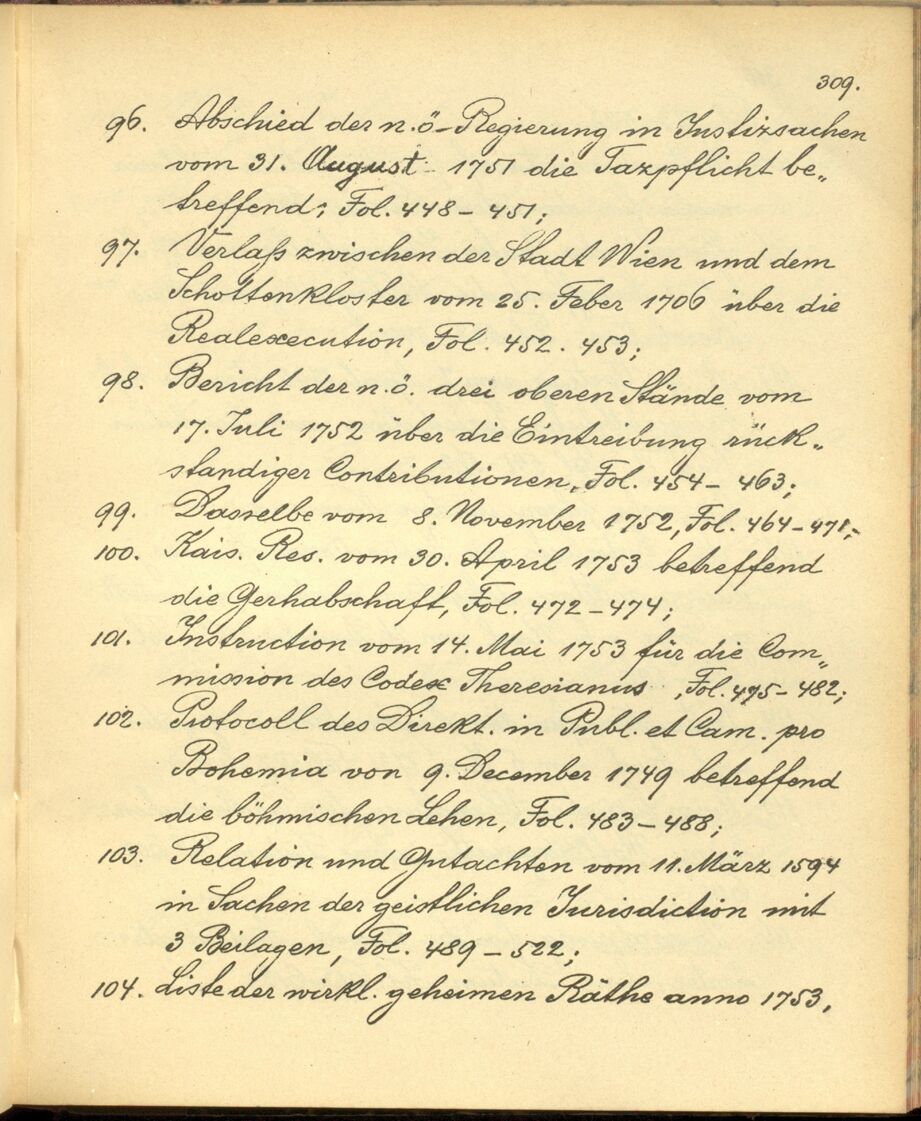 309.
96. Abschied der n.ö-Regierung in Justizsachen
vom 31. August 1751 die Taxpflicht be„
treffend; Fol. 448 – 451;
97. Verlaß zwischen der Stadt Wien und dem
Schottenkloster vom 25. Feber 1706 über die
Realexecution, Fol. 452. 453;
98. Bericht der n.ö. drei oberen Stände vom
17. Juli 1752 über die Eintreibung rück„
standiger Contributionen, Fol. 454 – 463;
99. Dasselbe vom 8. November 1752, Fol. 464 – 471;
100. Kais. Res. vom 30. April 1753 betreffend
die Gerhabschaft, Fol. 472 – 474;
101. Instruction vom 14. Mai 1753 für die Com„
mission des Codex Theresianus, Fol. 475 – 482;
102. Protocoll des Direkt. in Publ. et Cam. pro
Bohemia von 9. December 1749 betreffend
die böhmischen Lehen, Fol. 483 – 488;
103. Relation und Gutachten vom 11. März 1594
in Sachen der geistlichen Jurisdiction mit
3 Beilagen, Fol. 489 – 522;
104. Liste der wirkl. geheimen Räthe anno 1753,